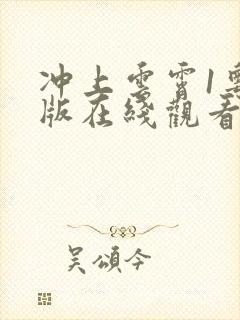 冲上雲霄1
版在綫觀看
吴頌今